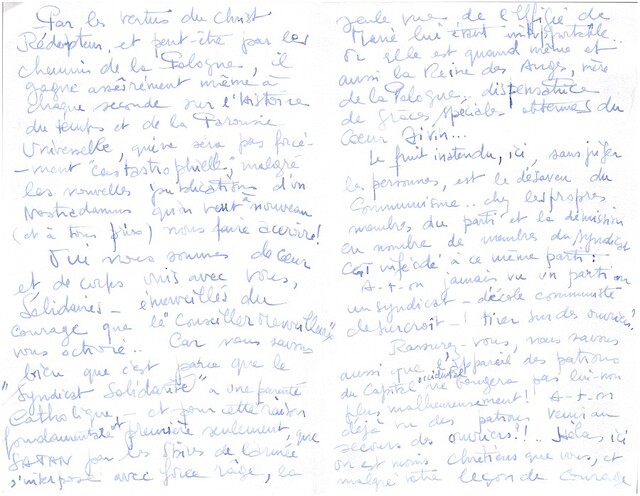 Par les vertus du Christ
Rédempteur, et peut-être par les
chemins de la Pologne, il
gagne assurément même à
chaque seconde sur l'Histoire
du temps et de la Parousie
Universelle, qui ne sera pas forcé-
-ment "catastrophielle", malgré
les nouvelles publications d'un
Nostradamus qu'on veut à nouveau
(et à tous prix) nous faire accroire!
Oui nous sommes de cœur
et de corps unis avec vous,
Solidaires - émerveillés du
courage que le "Conseiller Merveilleux"
vous octroie.. Car nous savons
bien que c'est parce que le
"Syndicat Solidarité" a une parenté
Catholique, - et pour cette raison
fondamentale et première seulement, que
SATAN par les sbires de l'armée
s'interpose avec force rage, la
seule vue de l'Effigie de
Marie lui étant insupportable..
Or elle est quand même et
aussi la Reine des Anges, mère
de la Pologne, dispensatrice
de Grâces spéciales du
Cœur Divin...
Le fruit inattendu, ici, sans juger
les personnes, est le désaveu du
Communisme.. chez les propres
membres du parti et la démission
en nombre de membres du Syndicat
C.G.T. inféodé à ce même parti!
A-t-on jamais vu un parti ou
un syndicat - d'école communiste
de surcroît - ! tirer sur des ouvriers!
Rassurez-vous, nous savons
aussi que l'Appareil des patrons
du Capital occidental ne bougera pas lui-non
plus malheureusement! A-t-on
déjà vu des patrons venir au
secours des ouvriers!!.. Hélas ici
on est moins chrétiens que vous, et
malgré votre leçon de courage